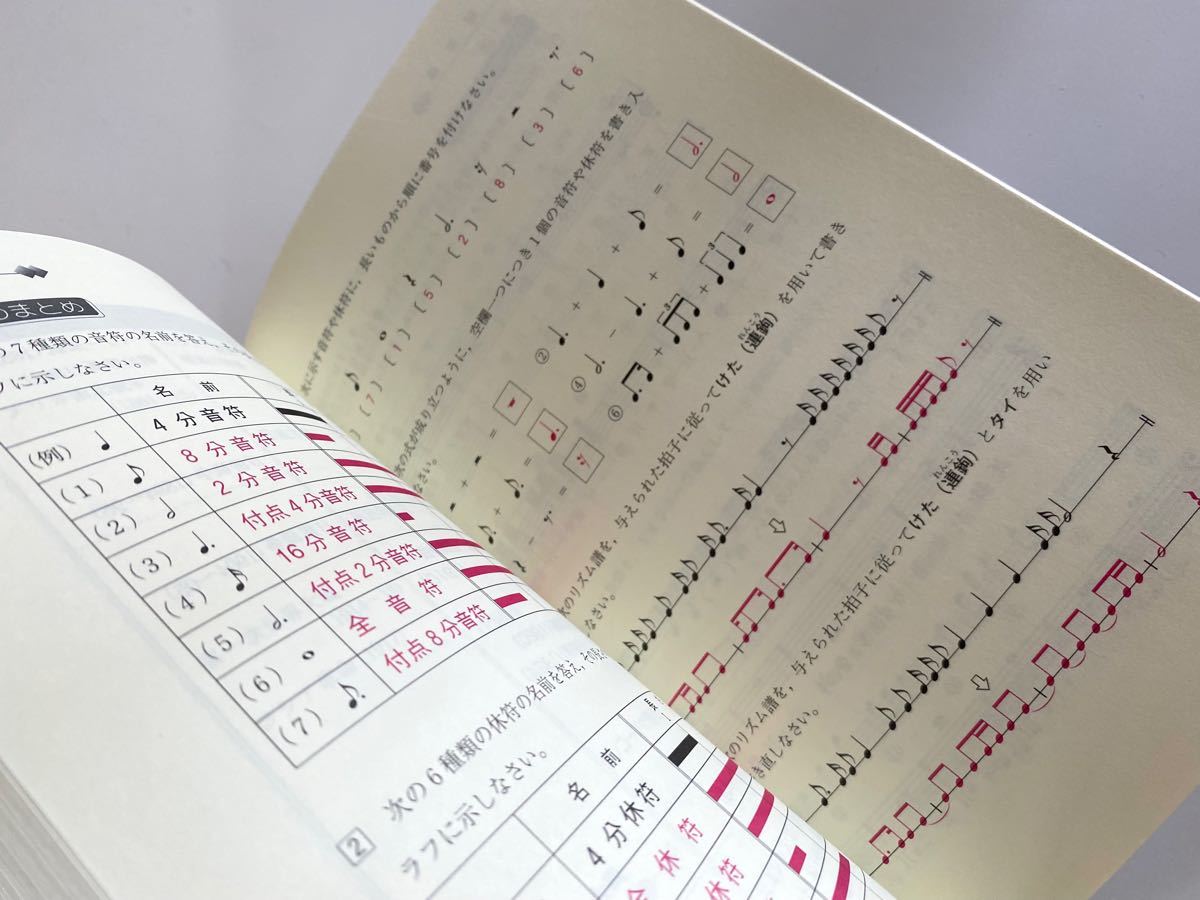 のまとめ
7種類の音符の名前を答え，その
フに示しなさい。
名 前
(例) 4分音符
(1) 8分音符
(2) 2分音符
(3) 付点4分音符
(4) 16分音符
(5) 付点2分音符
(6) 全 音 符
(7) 付点8分音符
2 次の6種類の休符の名前を答え，その
ラフに示しなさい。
名 前
4分休符
全 休 符
休符
に示す音符や休符に，長いものから順に番号を付けなさい。
[ 7 ] [ 1 ] [ 5 ] [ 2 ] [ 8 ] [ 3 ] [ 6 ]
次の式が成り立つように，空欄一つにつき1個の音符や休符を書き入
なさい。
= ② + + =
= ④ − + =
= ⑥ + + =
次のリズム譜を，与えられた拍子に従ってけた（連鉤）を用いて書き
れんこう
なさい。
のリズム譜を，与えられた拍子に従ってけた（連鉤）とタイを用い
れんこう
き直しなさい。